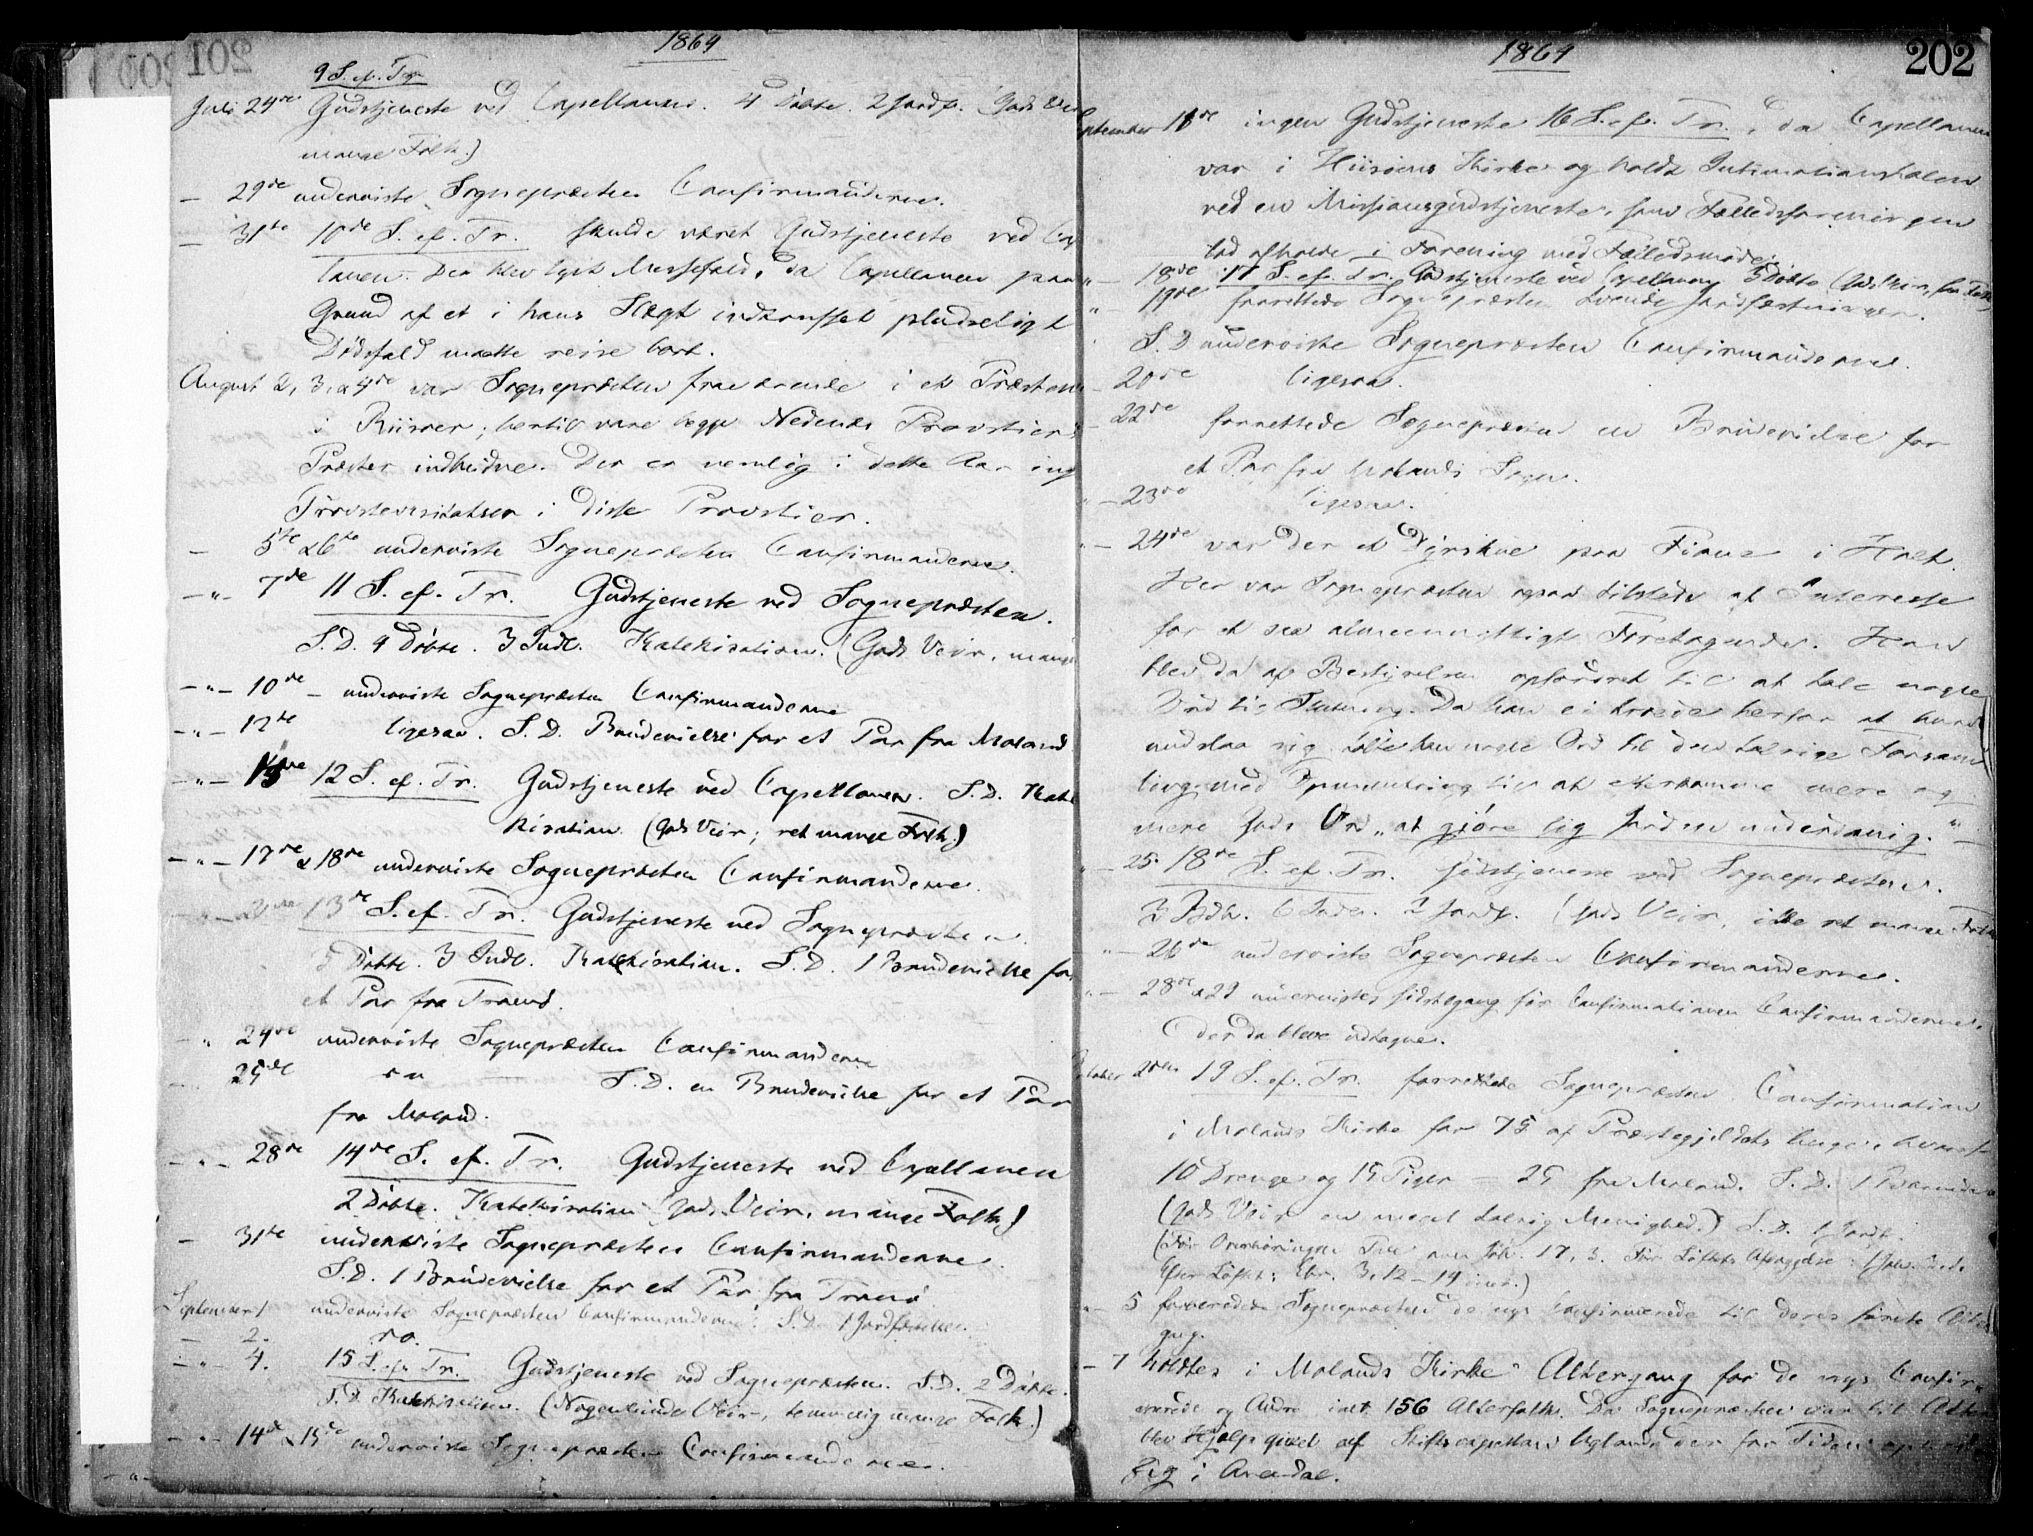 1864
9 S. ef. Tr.
Juli 24de Gudstjeneste ved Capellanen. 4 Døbte. 2 Jordf. (Godt Veir
mange Folk.)
— 29de underviste Sognepræsten Confirmanderne.
— 31te 10de S. ef. Tr. skulde været Gudstjeneste ved Cap
lanen. Der blev lyst Messefald, da Capellanen paa
Grund af et i hans Slægt indtruffet pludseligt
Dødsfald maatte reise bort.
August 2, 3, & 4de var Sognepræsten fraværende i et Præstemø
i Riisøer; hertil vare begge Nedenæs Provstiers
Præster indbudne. Der er nemlig i dette Aar ing
Provstevisitatser i disse Provstier.
— 5te & 6te underviste Sognepræsten Confirmanderne.
—"— 7de 11 S. ef. Tr. Gudstjeneste ved Sognepræsten.
S.D. 9 Døbte. 3 Indl. Katekisation. (Godt Veir, mange
—"— 10de — underviste Sognepræsten Confirmanderne
—"— 12te ligesaa. S.D. Brudevielse for et Par fra Moland
—"— 12 S. ef. Tr. Gudstjeneste ved Capellanen. S.D. Kate
kisation (Godt Veir; ret mange Folk.)
—"— 17de & 18de underviste Sognepræsten Confirmanderne.
—"— 21de 13de S. ef. Tr. Gudstjeneste ved Sognepræsten
5 Døbte. 3 Indl. Katekisation. S.D. 1 Brudevielse for
et Par fra Tromø.
—" 24de underviste Sognepræsten Confirmanderne
25de do S.D. en Brudevielse for et Par
fra Moland.
—"— 28de 14de S. ef. Tr. Gudstjeneste ved Capellanen
2 Døbte. Katekisation (Godt Veir, mange Folk)
— 31te underviste Sognepræsten Confirmanderne.
S.D. 1 Brudevielse for et Par fra Tromø
September 1 underviste Sognepræsten Confirmanderne. S.D. 1 Jordfæstelse.
— 2. do.
—"— 4. 15 S. ef. Tr. Gudstjeneste ved Sognepræsten. S.D. 2 Døbte.
S.D. Katekisation. (Nogenlunde Veir, temmelig mange Folk.)
—"— 14de & 15de underviste Sognepræsten Confirmanderne.
1864
202
September 11te ingen Gudstjeneste 16 S. ef. Tr., da Capellanen
var i Hisøens Kirke og holdt Intimationstalen
ved en Missionsgudstjeneste, som Fælledsforeningen
lod afholde i Forening med Fælledsmøde.
"— 18de 17 S. ef. Tr. Gudstjeneste ved Capellanen 5 Døbte
"— 19de forrettede Sognepræsten Jordfæstninger.
S.D underviste Sognepræsten Confirmanderne.
20de ligesaa.
22de forrettede Sognepræsten en Brudevielse for
et Par fra Molands Sogn.
"— 23de ligesaa.
"— 24de var der et Dyrskue paa Fiane i Holt.
Her var Sognepræsten ogsaa tilstede af Interesse
for et saa almeennyttigt Foretagende. Han
blev da af Bestyrelsen opfordret til at tale nogle
Ord til Slutning. Da han ei troede herfor at kunne
undslaa sig, talte han nogle Ord til den talrige Forsam
ling med Opmuntring til at efterkomme mere og
mere Guds Ord „at gjøre sig Jorden underdanig."
"— 25. 18de S. ef. Tr. Gudstjeneste ved Sognepræsten.
6 Indl. 2 Jordf. (Godt Veir, ikke ret mange Folk
"— 26de underviste Sognepræsten Confirmanderne.
"— 28de & 29 undervistes sidstegang før Confirmationen Confirmanderne,
der da bleve udtagne.
October 2den 19 S. ef. Tr. forrettede Sognepræsten Confirmation
i Molands Kirke for 75 af Præstegjeldets Unge, hvoraf
10 Drenge og 15 Piger = 25 fra Moland. S.D. 1 Brudevi
(Godt Veir en meget talrig Menighed.) S.D. 1 Jordf.
(Før Overhøringen Tale over Joh. 17, 3. Før Løftets Aflæggelse:
Efter Løftet: Ebr. 3, 12–14 incl.)
"— 5 forberedede Sognepræsten de nys Confirmerede til deres første Alter
gang.
"— 7 holdtes i Molands Kirke Altergang for de nys Confir-
merede og Andre ialt 156 Altergjæster. Da Sognepræsten var til Alters
blev Hjælp givet af Stiftscapellan Ugland der for Tiden opholdt
sig i Arendal.